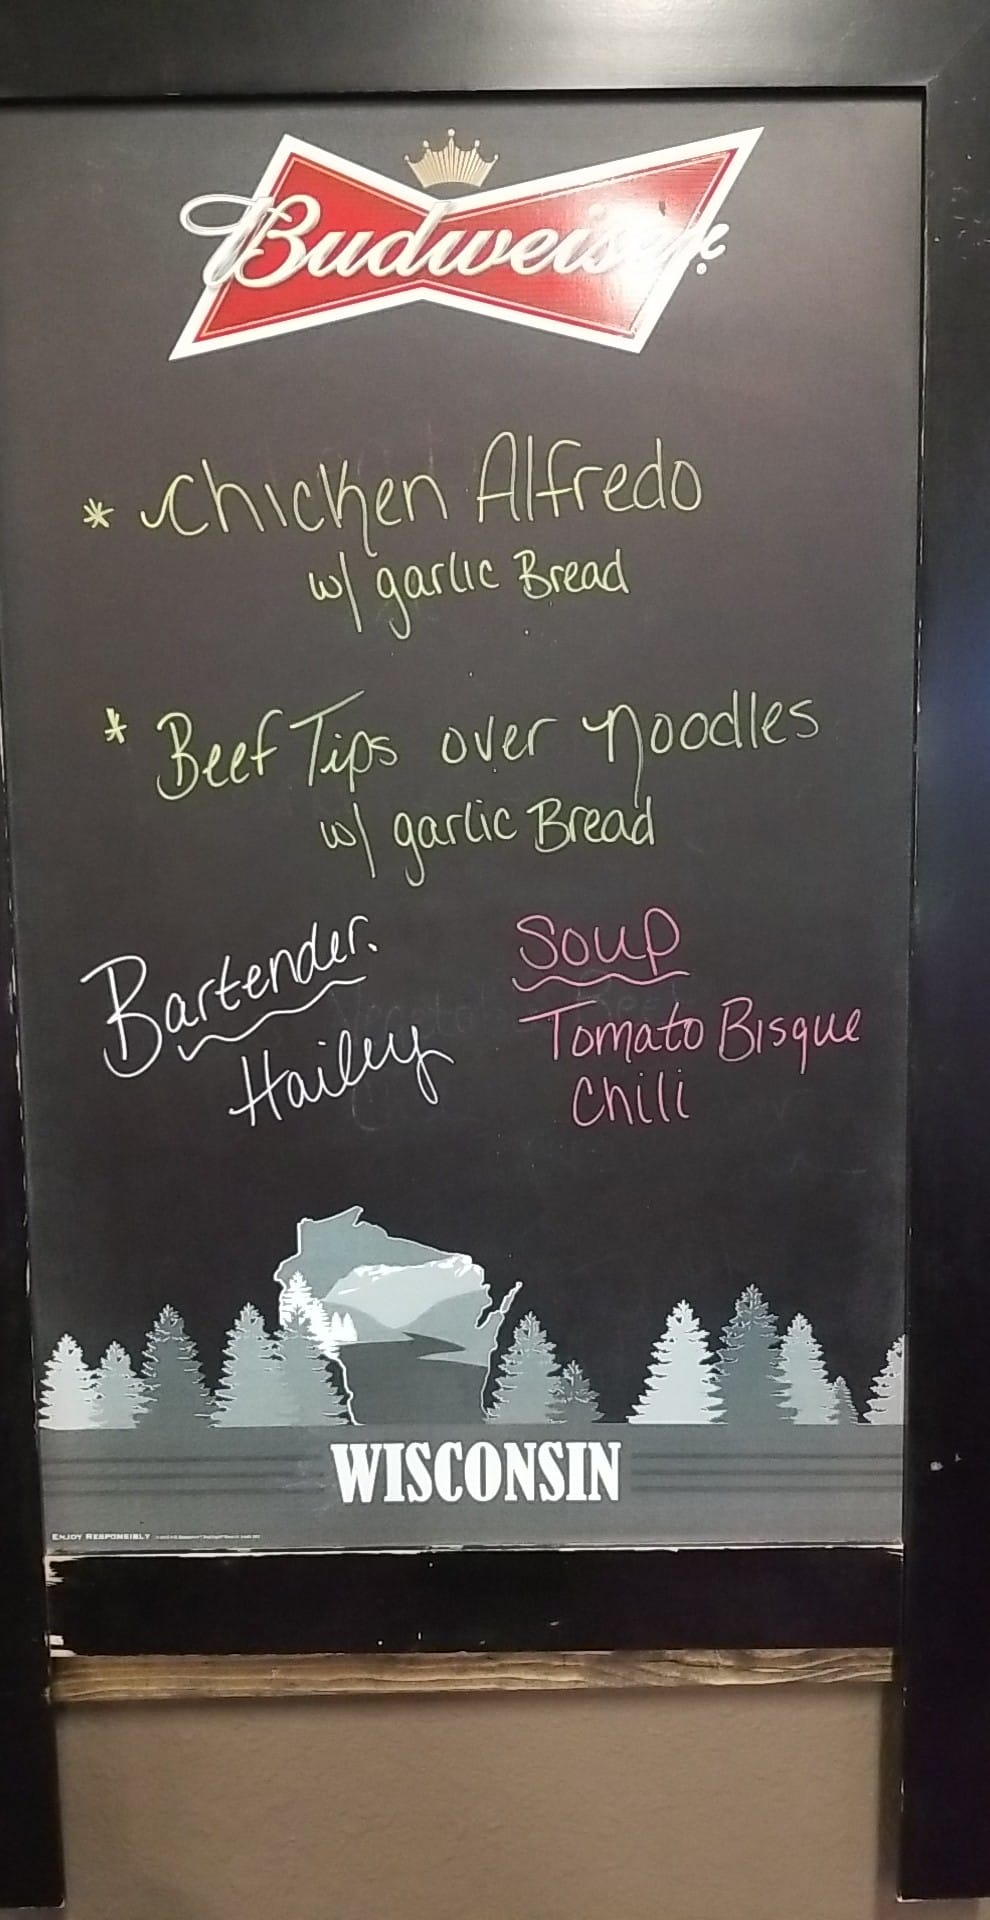 Budweiser
* Chicken Alfredo
w/ garlic Bread
* Beef Tips over noodles
w/ garlic Bread
Bartender.
Hailey
Soup
Tomato Bisque
Chili
WISCONSIN
ENJOY RESPONSIBLY